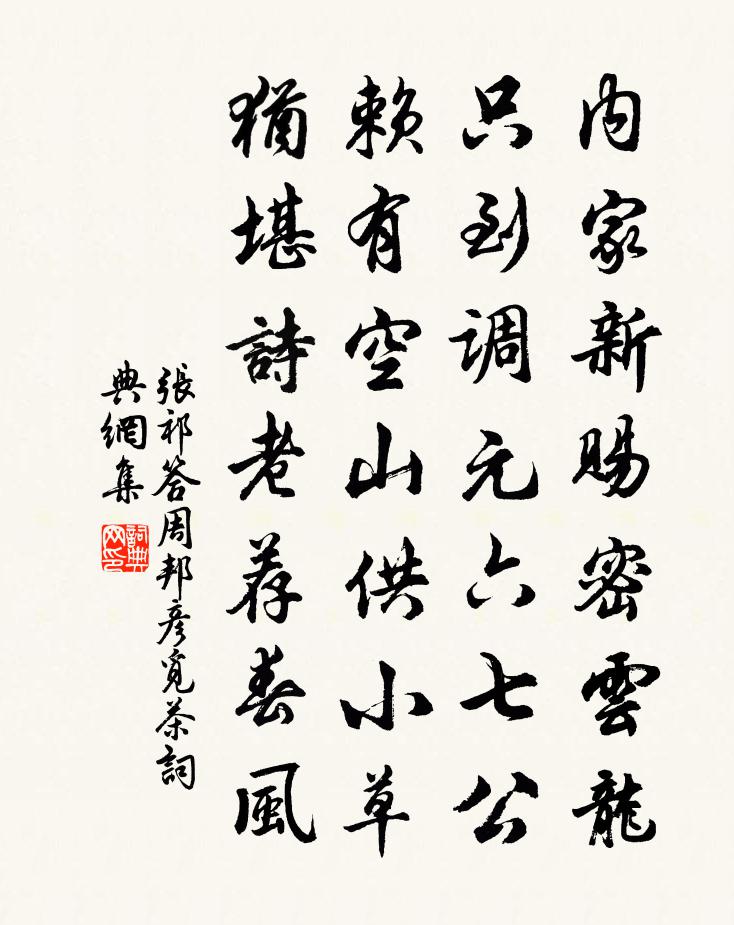 内家新賜密雲龍
只到调元六七公
赖有空山供小草
猶堪詩老荐春風
張祁答周邦彦覓茶詞
典網集
詞典网印